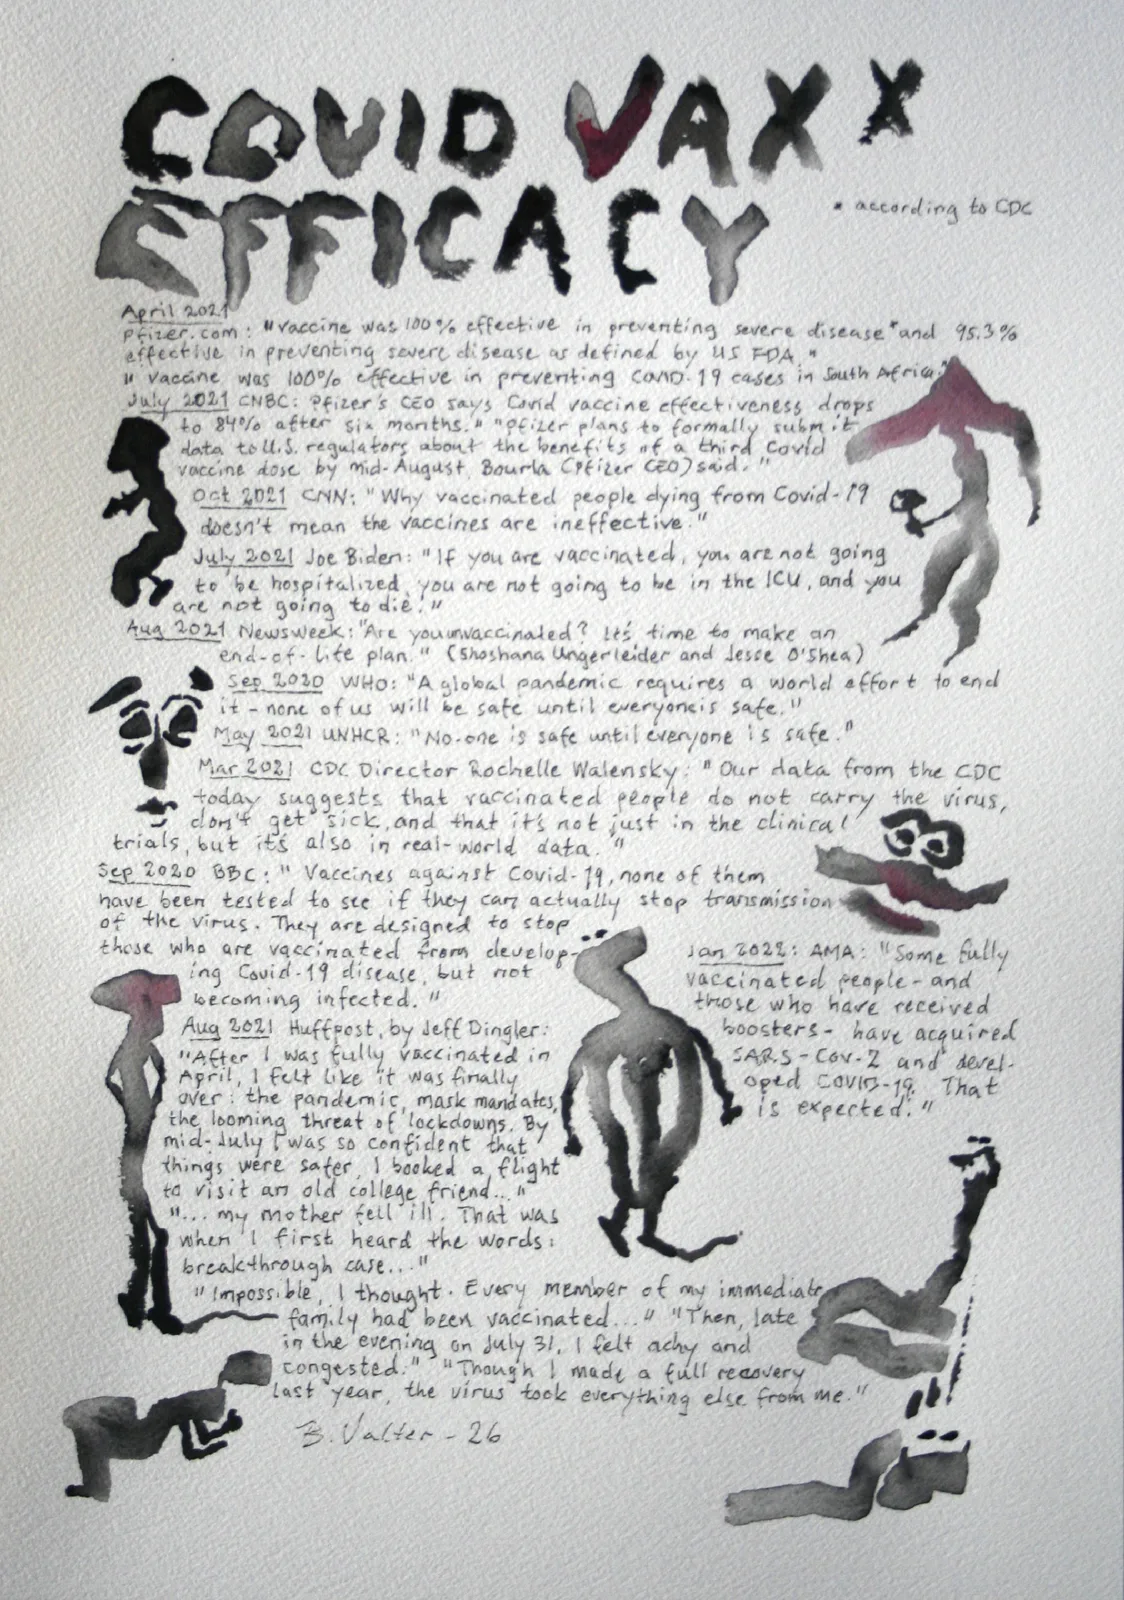 COVID VAX *
EFFICACY
* according to CDC
April 2021
Pfizer.com: "vaccine was 100% effective in preventing severe disease" and 95.3%
effective in preventing severe disease as defined by US FDA."
"vaccine was 100% effective in preventing COVID-19 cases in South Africa."
July 2021 CNBC: Pfizer's CEO says Covid vaccine effectiveness drops
to 84% after six months." "Pfizer plans to formally submit
data to U.S. regulators about the benefits of a third Covid
vaccine dose by mid-August, Bourla (Pfizer CEO) said."
Oct 2021 CNN: "Why vaccinated people dying from Covid-19
doesn't mean the vaccines are ineffective."
July 2021 Joe Biden: "If you are vaccinated, you are not going
to be hospitalized, you are not going to be in the ICU, and you
are not going to die."
Aug 2021 Newsweek: "Are you unvaccinated? It's time to make an
end-of-life plan." (Shoshana Ungerleider and Jesse O'Shea)
Sep 2020 WHO: "A global pandemic requires a world effort to end
it - none of us will be safe until everyone is safe."
May 2021 UNHCR: "No-one is safe until everyone is safe."
Mar 2021 CDC Director Rochelle Walensky: "Our data from the CDC
today suggests that vaccinated people do not carry the virus,
don't get sick, and that it's not just in the clinical
trials, but it's also in real-world data."
Sep 2020 BBC: "Vaccines against Covid-19, none of them
have been tested to see if they can actually stop transmission
of the virus. They are designed to stop
those who are vaccinated from develop-
ing Covid-19 disease, but not
becoming infected."
Jan 2022: AMA: "Some fully
vaccinated people - and
those who have received
boosters - have acquired
SARS-Cov-2 and devel-
oped COVID-19. That
is expected."
Aug 2021 Huffpost, by Jeff Dingler:
"After I was fully vaccinated in
April, I felt like it was finally
over: the pandemic, mask mandates,
the looming threat of lockdowns. By
mid-July I was so confident that
things were safer, I booked a flight
to visit an old college friend..."
"... my mother fell ill. That was
when I first heard the words:
breakthrough case..."
"Impossible, I thought. Every member of my immediate
family had been vaccinated..." "Then, late
in the evening on July 31, I felt achy and
congested." "Though I made a full recovery
last year, the virus took everything else from me."
B. Valter - 26